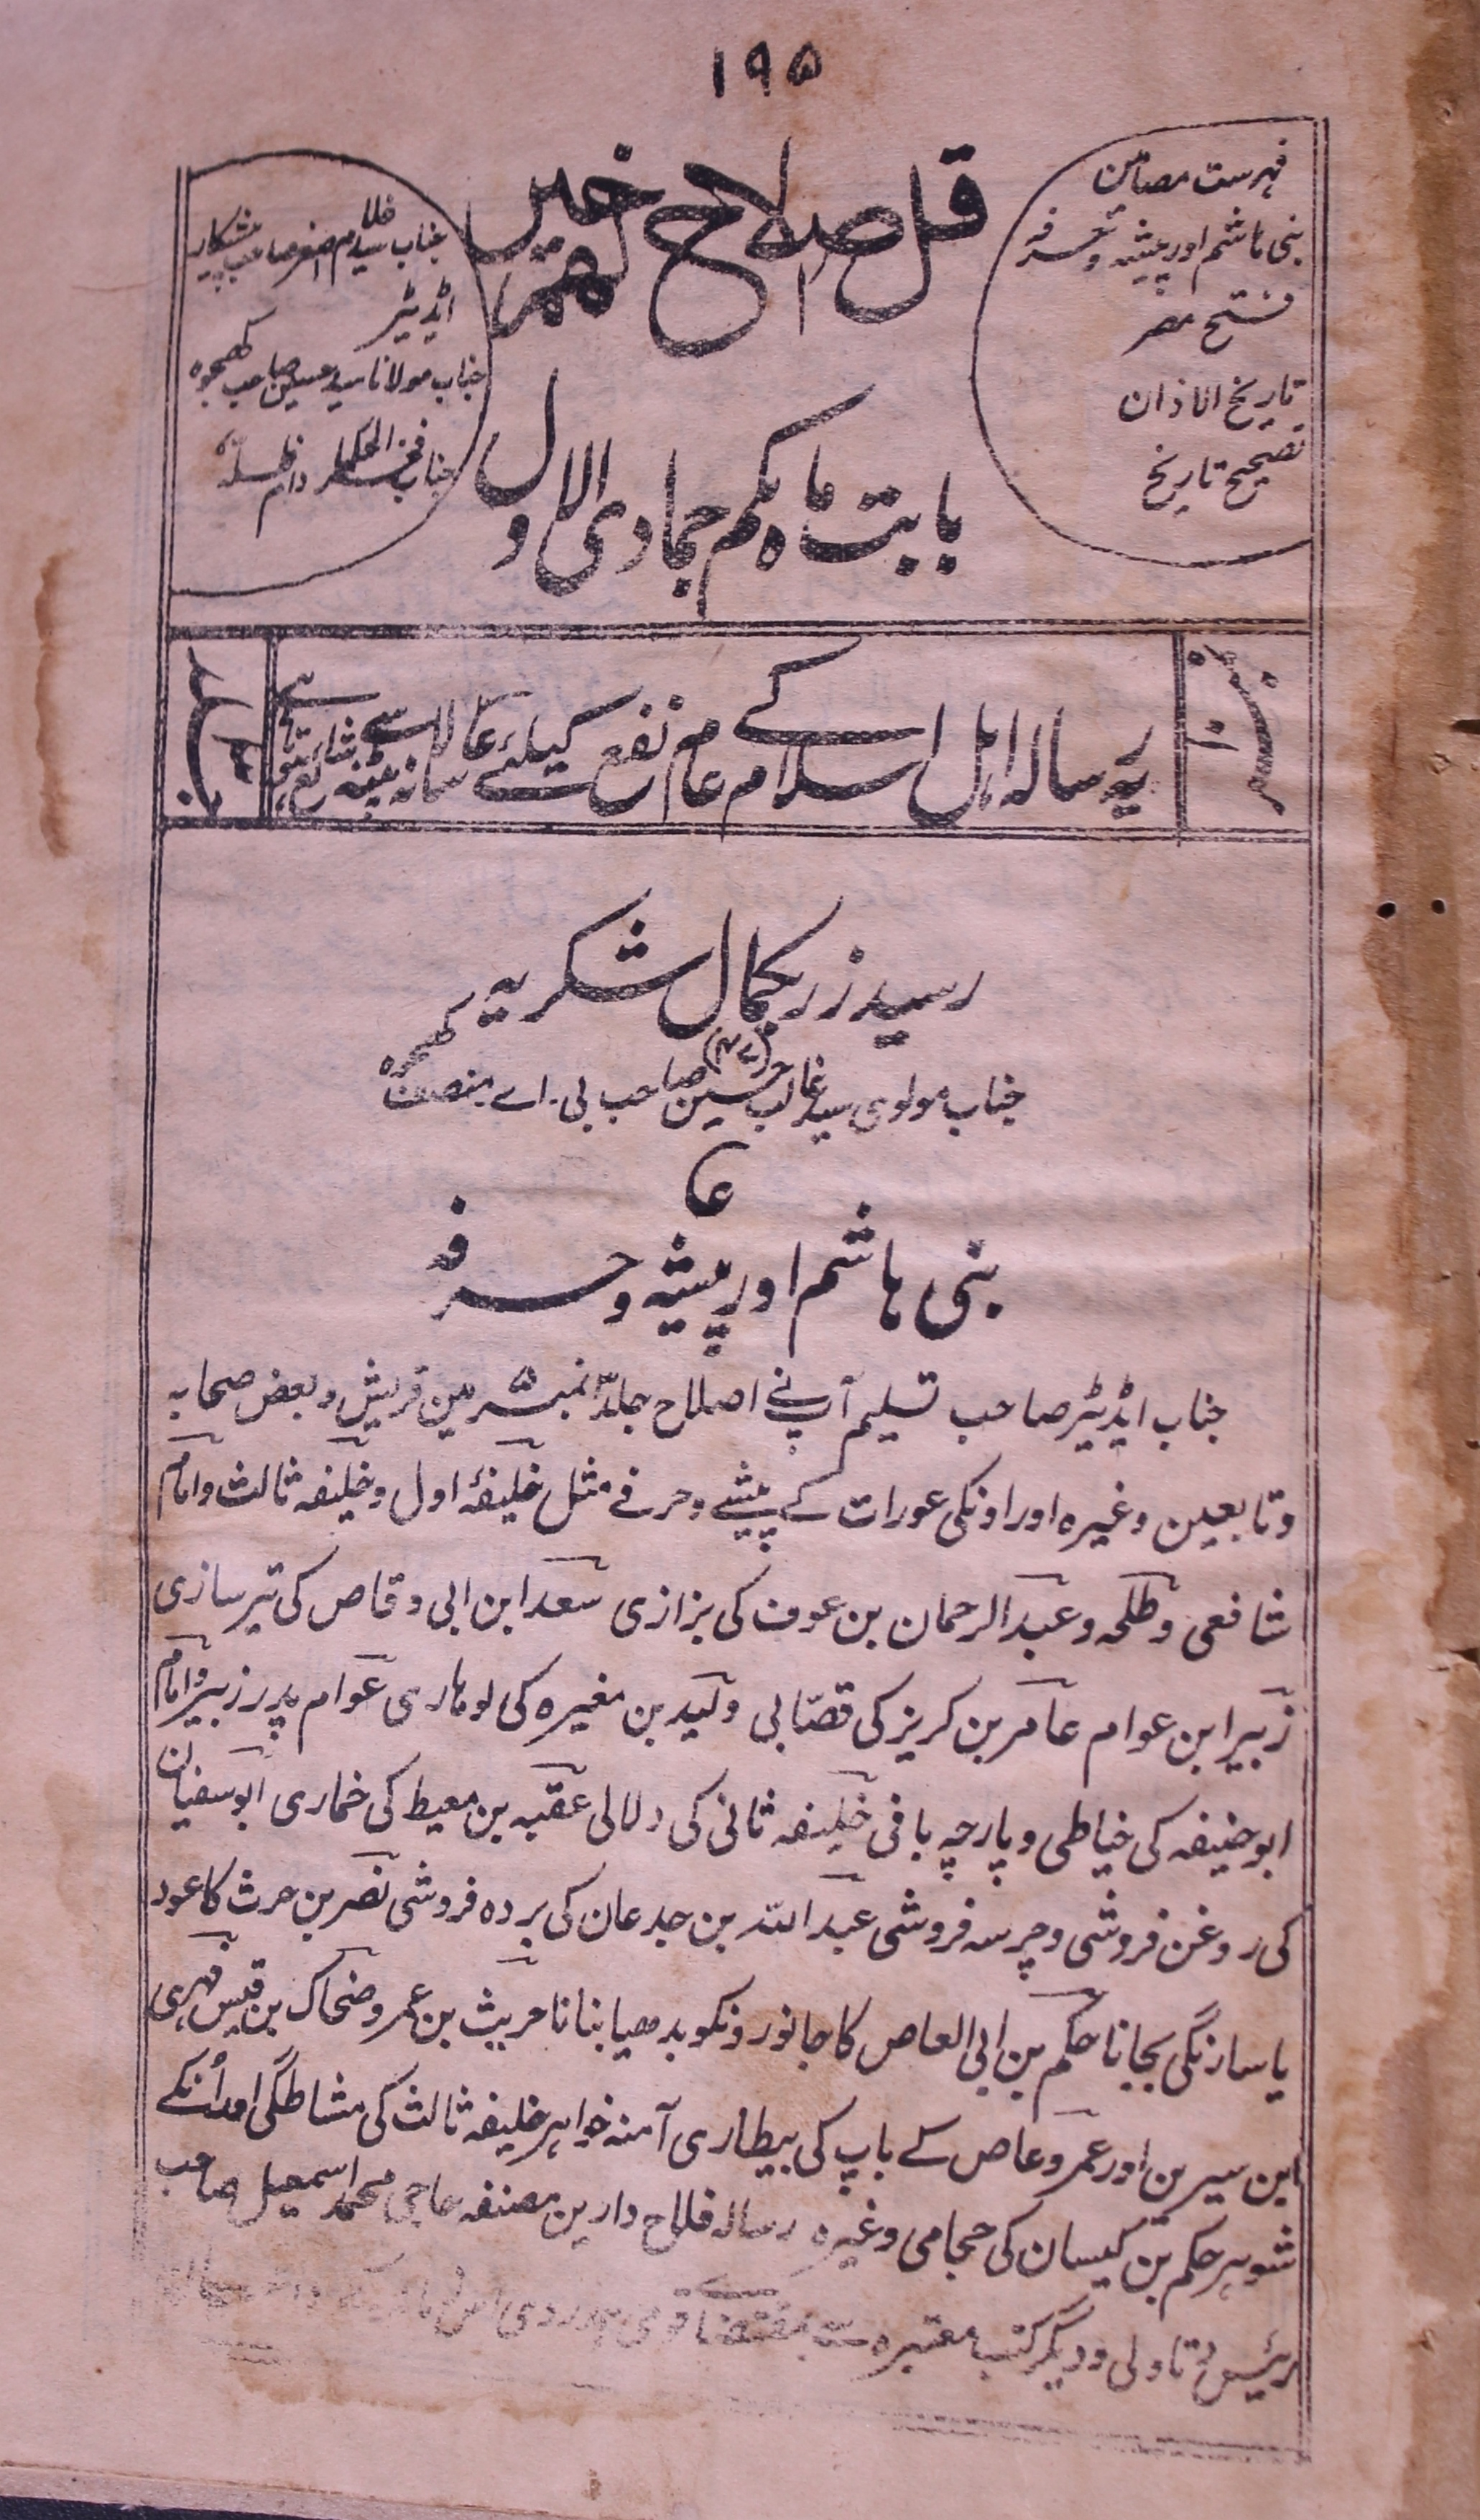 ۱۹۵
فہرست مضامین
بنی ہاشم اور پیشہ و حرفہ
فتح مصر
تاریخ الاذان
تصحیح تاریخ
قل اصلاح لهم خیر
بابت ماہ یکم جمادی الاول
جناب سید صاحب پیشکار
اڈیٹر
جناب مولانا سید حسین صاحب کھجوہ
جناب فخر الحکماء دام ظلہ
یہ رسالہ اہل اسلام کے عام نفع کیلئے سے شائع ہوتا ہے
رسید زر بکمال شکریہ
جناب مولوی سید غالب حسین صاحب بی۔ اے منصف کھجوہ
بنی ہاشم اور پیشہ و حرفہ
جناب ایڈیٹر صاحب تسلیم آپ نے اصلاح جلد ۳ نمبر ۵ مین قریش و بعض صحابہ
و تابعین وغیرہ اور اونکی عورات کے پیشے و حرفے مثل خلیفۂ اول و خلیفہ ثالث و امام
شافعی و طلحہ و عبد الرحمان بن عوف کی بزازی سعد ابن ابی وقاص کی تیر سازی
زبیر ابن عوام عامر بن کریز کی قصّابی ولید بن مغیرہ کی لوہاری عوام پدر زبیر و امام
ابو حنیفہ کی خیاطی و پارچہ بافی خلیفہ ثانی کی دلالی عقبہ بن معیط کی خماری ابوسفیان
کی روغن فروشی و چرسہ فروشی عبد اللہ بن جدعان کی بردہ فروشی نضر بن حرث کا عود
یا سارنگی بجانا حکم بن ابی العاص کا جانورونکو بدھیا بنانا حریث بن عمر و ضحاک بن قیس فہری
ابن سیرین اور عمر و عاص کے باپ کی بیطاری آمنہ خواہر خلیفہ ثالث کی مشاطگی اور اُنکے
شوہر حکم بن کیسان کی حجامی وغیرہ رسالہ فلاح دارین مصنفہ حاجی محمد اسمعیل صاحب
رئیس دتاولی و دیگر کتب معتبرہ سے بمقتضائے قومی ہمدردی